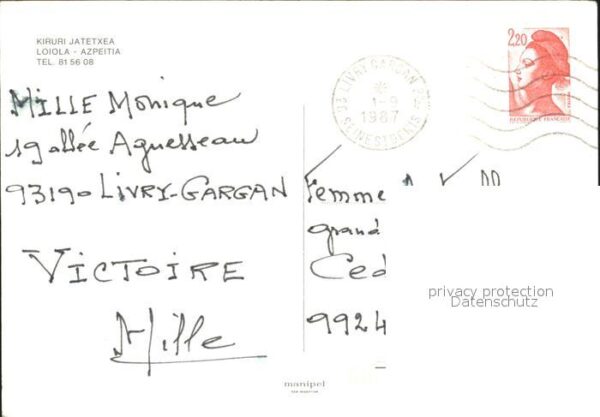 KIRURI JATETXEA
LOIOLA - AZPEITIA
TEL. 81 56 08
MILLE Monique
19 allée Aguesseau
93190 LIVRY-GARGAN
VICTOIRE
Mille
93 LIVRY GARGAN
1-9
1987
SEINE ST DENIS
2,20
REPUBLIQUE FRANÇAISE
Femme
grand
Ced
9924
privacy protection
Datenschutz
manipel